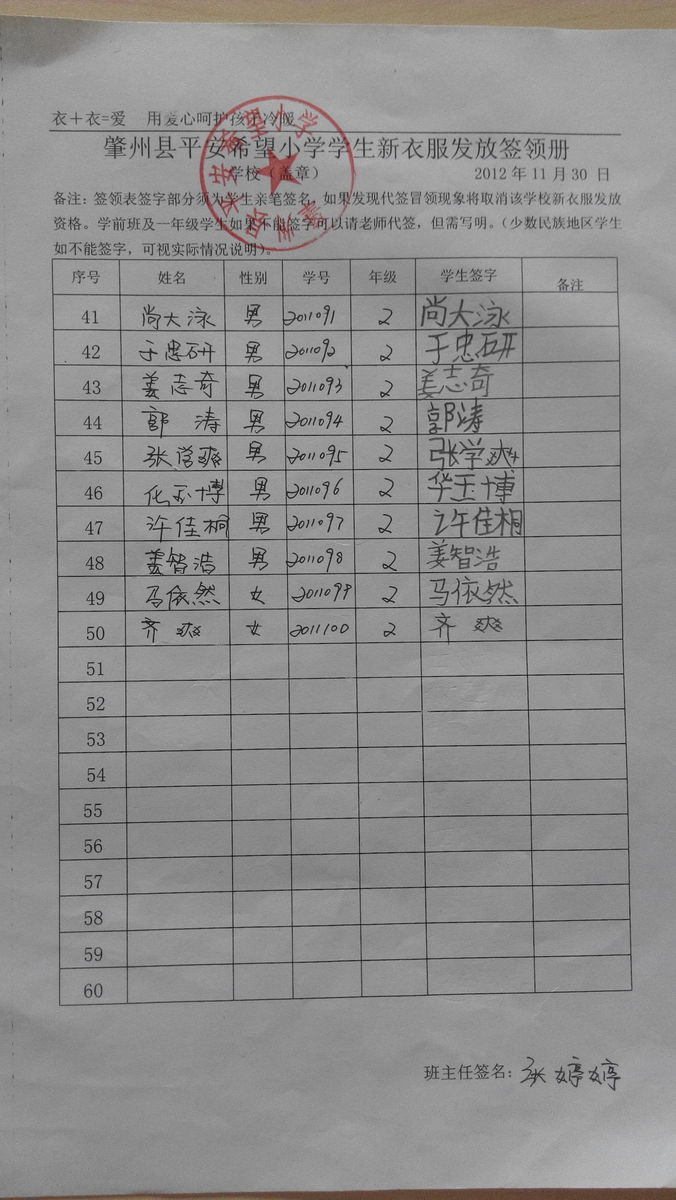 衣＋衣=爱 用爱心呵护孩子冷暖
肇州县平安希望小学学生新衣服发放签领册
学校（盖章） 2012 年 11 月 30 日
备注：签领表签字部分须为学生亲笔签名，如果发现代签冒领现象将取消该学校新衣服发放
资格。学前班及一年级学生如果不能签字可以请老师代签，但需写明。（少数民族地区学生
如不能签字，可视实际情况说明）。
序号 姓名 性别 学号 年级 学生签字 备注
41 尚大泳 男 2011091 2 尚大泳
42 于忠研 男 2011092 2 于忠研
43 姜志奇 男 2011093 2 姜志奇
44 郭涛 男 2011094 2 郭涛
45 张学爽 男 2011095 2 张学爽
46 化玉博 男 2011096 2 华玉博
47 许佳桐 男 2011097 2 许佳桐
48 姜智浩 男 2011098 2 姜智浩
49 马依然 女 2011099 2 马依然
50 齐爽 女 2011100 2 齐爽
51
52
53
54
55
56
57
58
59
60
班主任签名：张婷婷